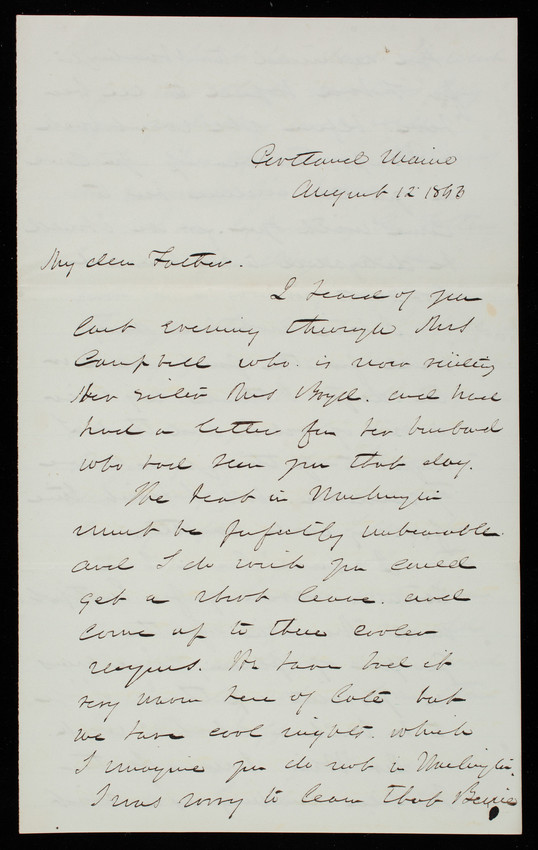 Portland Maine
August 12 1863
My dear Father.
I heard of you
last evening through Mrs
Campbell who is now visiting
Her sister Mrs Boyd. and had
had a letter fm her husband
who had seen you that day.
The heat in Washington
must be perfectly unbearable
and I do wish you could
get a short leave. and
come up to these cooler
regions. We have had it
very warm here of late but
we have cool nights. which
I imagine you do not in Washington.
I was sorry to learn that Bessie